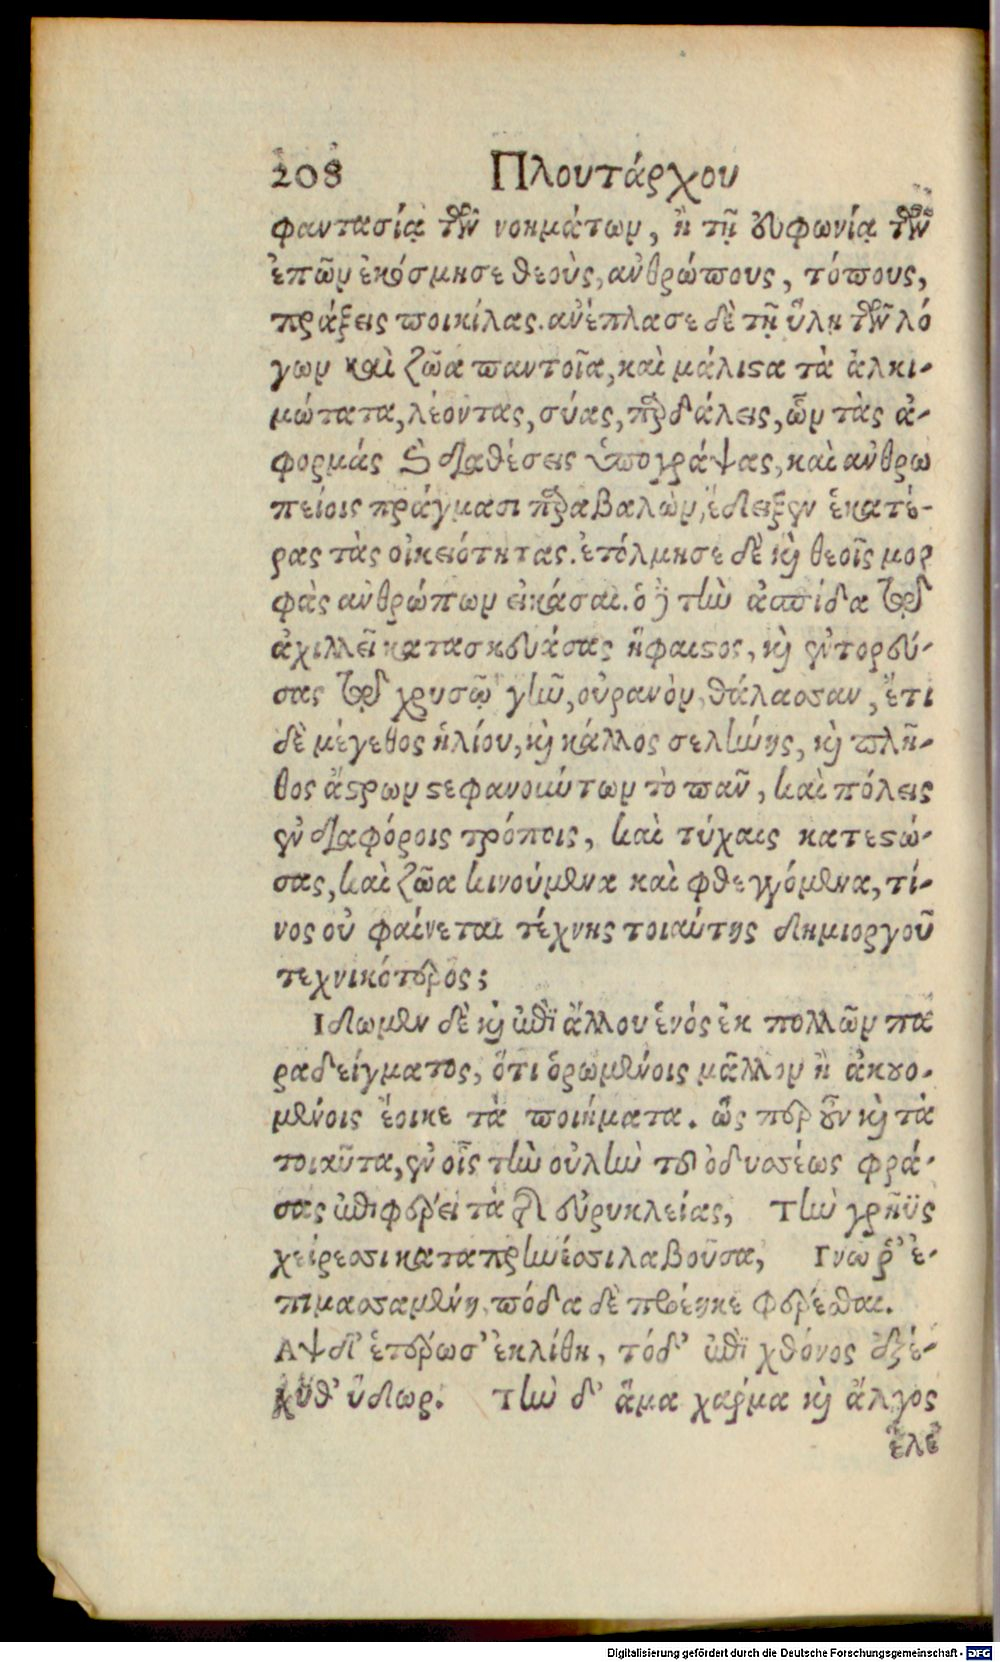 208 Πλουτάρχου
φαντασίᾳ τῶν νοημάτων, ἢ τῇ συμφωνίᾳ τῶν
ἐπῶν ἐκόσμησε θεοὺς, ἀνθρώπους, τόπους,
πράξεις ποικίλας. ἀνέπλασε δὲ τῇ ὕλῃ τῶν λό
γων καὶ ζῶα παντοῖα, καὶ μάλιστα τὰ ἀλκι-
μώτατα, λέοντας, σύας, παρδάλεις, ὧν τὰς ἀ-
φορμάς καὶ διαθέσεις ὑπογράψας, καὶ ἀνθρω
πείοις πράγμασι παραβαλὼν, ἔδειξεν ἑκατέ-
ρας τὰς οἰκειότητας. ἐτόλμησε δὲ καὶ θεοῖς μορ
φὰς ἀνθρώπων εἰκάσαι. ὁ γὰρ τὴν ἀσπίδα τῷ
ἀχιλλεῖ κατασκευάσας ἥφαιστος, καὶ ἐντορεύ-
σας τῷ χρυσῷ γῆν, οὐρανὸν, θάλασσαν, ἔτι
δὲ μέγεθος ἡλίου, καὶ κάλλος σελήνης, καὶ πλῆ-
θος ἄστρων στεφανούντων τὸ πᾶν, καὶ πόλεις
ἐν διαφόροις τρόποις, καὶ τύχαις κατεστώ-
σας, καὶ ζῶα κινούμενα καὶ φθεγγόμενα, τί-
νος οὐ φαίνεται τέχνης τοιαύτης δημιοργοῦ
τεχνικότερος;
Ιδωμεν δὲ καὶ ἐπὶ ἄλλου ἑνός ἐκ πολλῶν πα
ραδείγματος, ὅτι ὁρωμένοις μᾶλλον ἢ ἀκουο-
μένοις ἔοικε τὰ ποιήματα. ὥς περ οὖν καὶ τὰ
τοιαῦτα, ἐν οἷς τὴν οὐλὴν τοῦ ὀδυσσέως φρά-
σας ἐπιφέρει τὰ τῆς εὐρυκλείας, Τὴν γρηῢς
χείρεσσι καταπρηνέσσι λαβοῦσα, Γνῶ ῥ' ἐ-
πιμασσαμένη, πόδα δὲ προέηκε φέρεσθαι.
Αψ δ' ἑτέρωσ' ἐκλίθη, τόδ' ἐπὶ χθόνος ἐξέ-
χύθ' ὕδωρ. Τὴν δ' ἅμα χάρμα καὶ ἄλγος
ἕλε
Digitalisierung gefördert durch die Deutsche Forschungsgemeinschaft - DFG